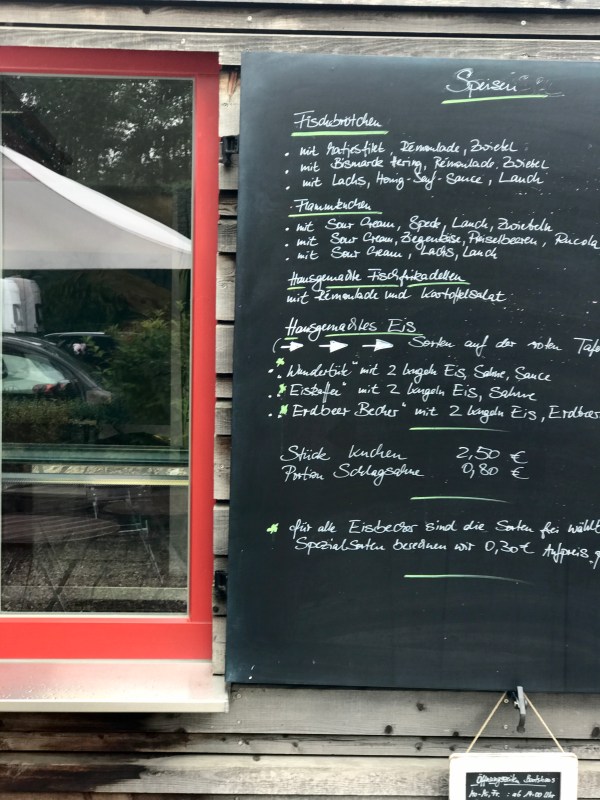 Speisen
Fischbrötchen
. mit Matjesfilet, Remoulade, Zwiebel
. mit Bismarck Hering, Remoulade, Zwiebel
. mit Lachs, Honig-Senf-Sauce, Lauch
Flammkuchen
. mit Sour Cream, Speck, Lauch, Zwiebeln
. mit Sour Cream, Ziegenkäse, Preiselbeeren, Rucola
. mit Sour Cream, Lachs, Lauch
Hausgemachte Fischfrikadellen
mit Remoulade und Kartoffelsalat
Hausgemachtes Eis
(→ → → Sorten auf der roten Tafe
. * "Wundertüte" mit 2 kugeln Eis, Sahne, Sauce
. * "Eiskaffee" mit 2 kugeln Eis, Sahne
. * "Erdbeer Becher" mit 2 kugeln Eis, Erdbeer
Stück kuchen 2,50 €
Portion Schlagsahne 0,80 €
* für alle Eisbecher sind die Sorten frei wählb
Spezial-Sorten berechnen wir 0,30€ Aufpreis
Öffnungszeiten Bootshaus
: ab 14:00 Uhr